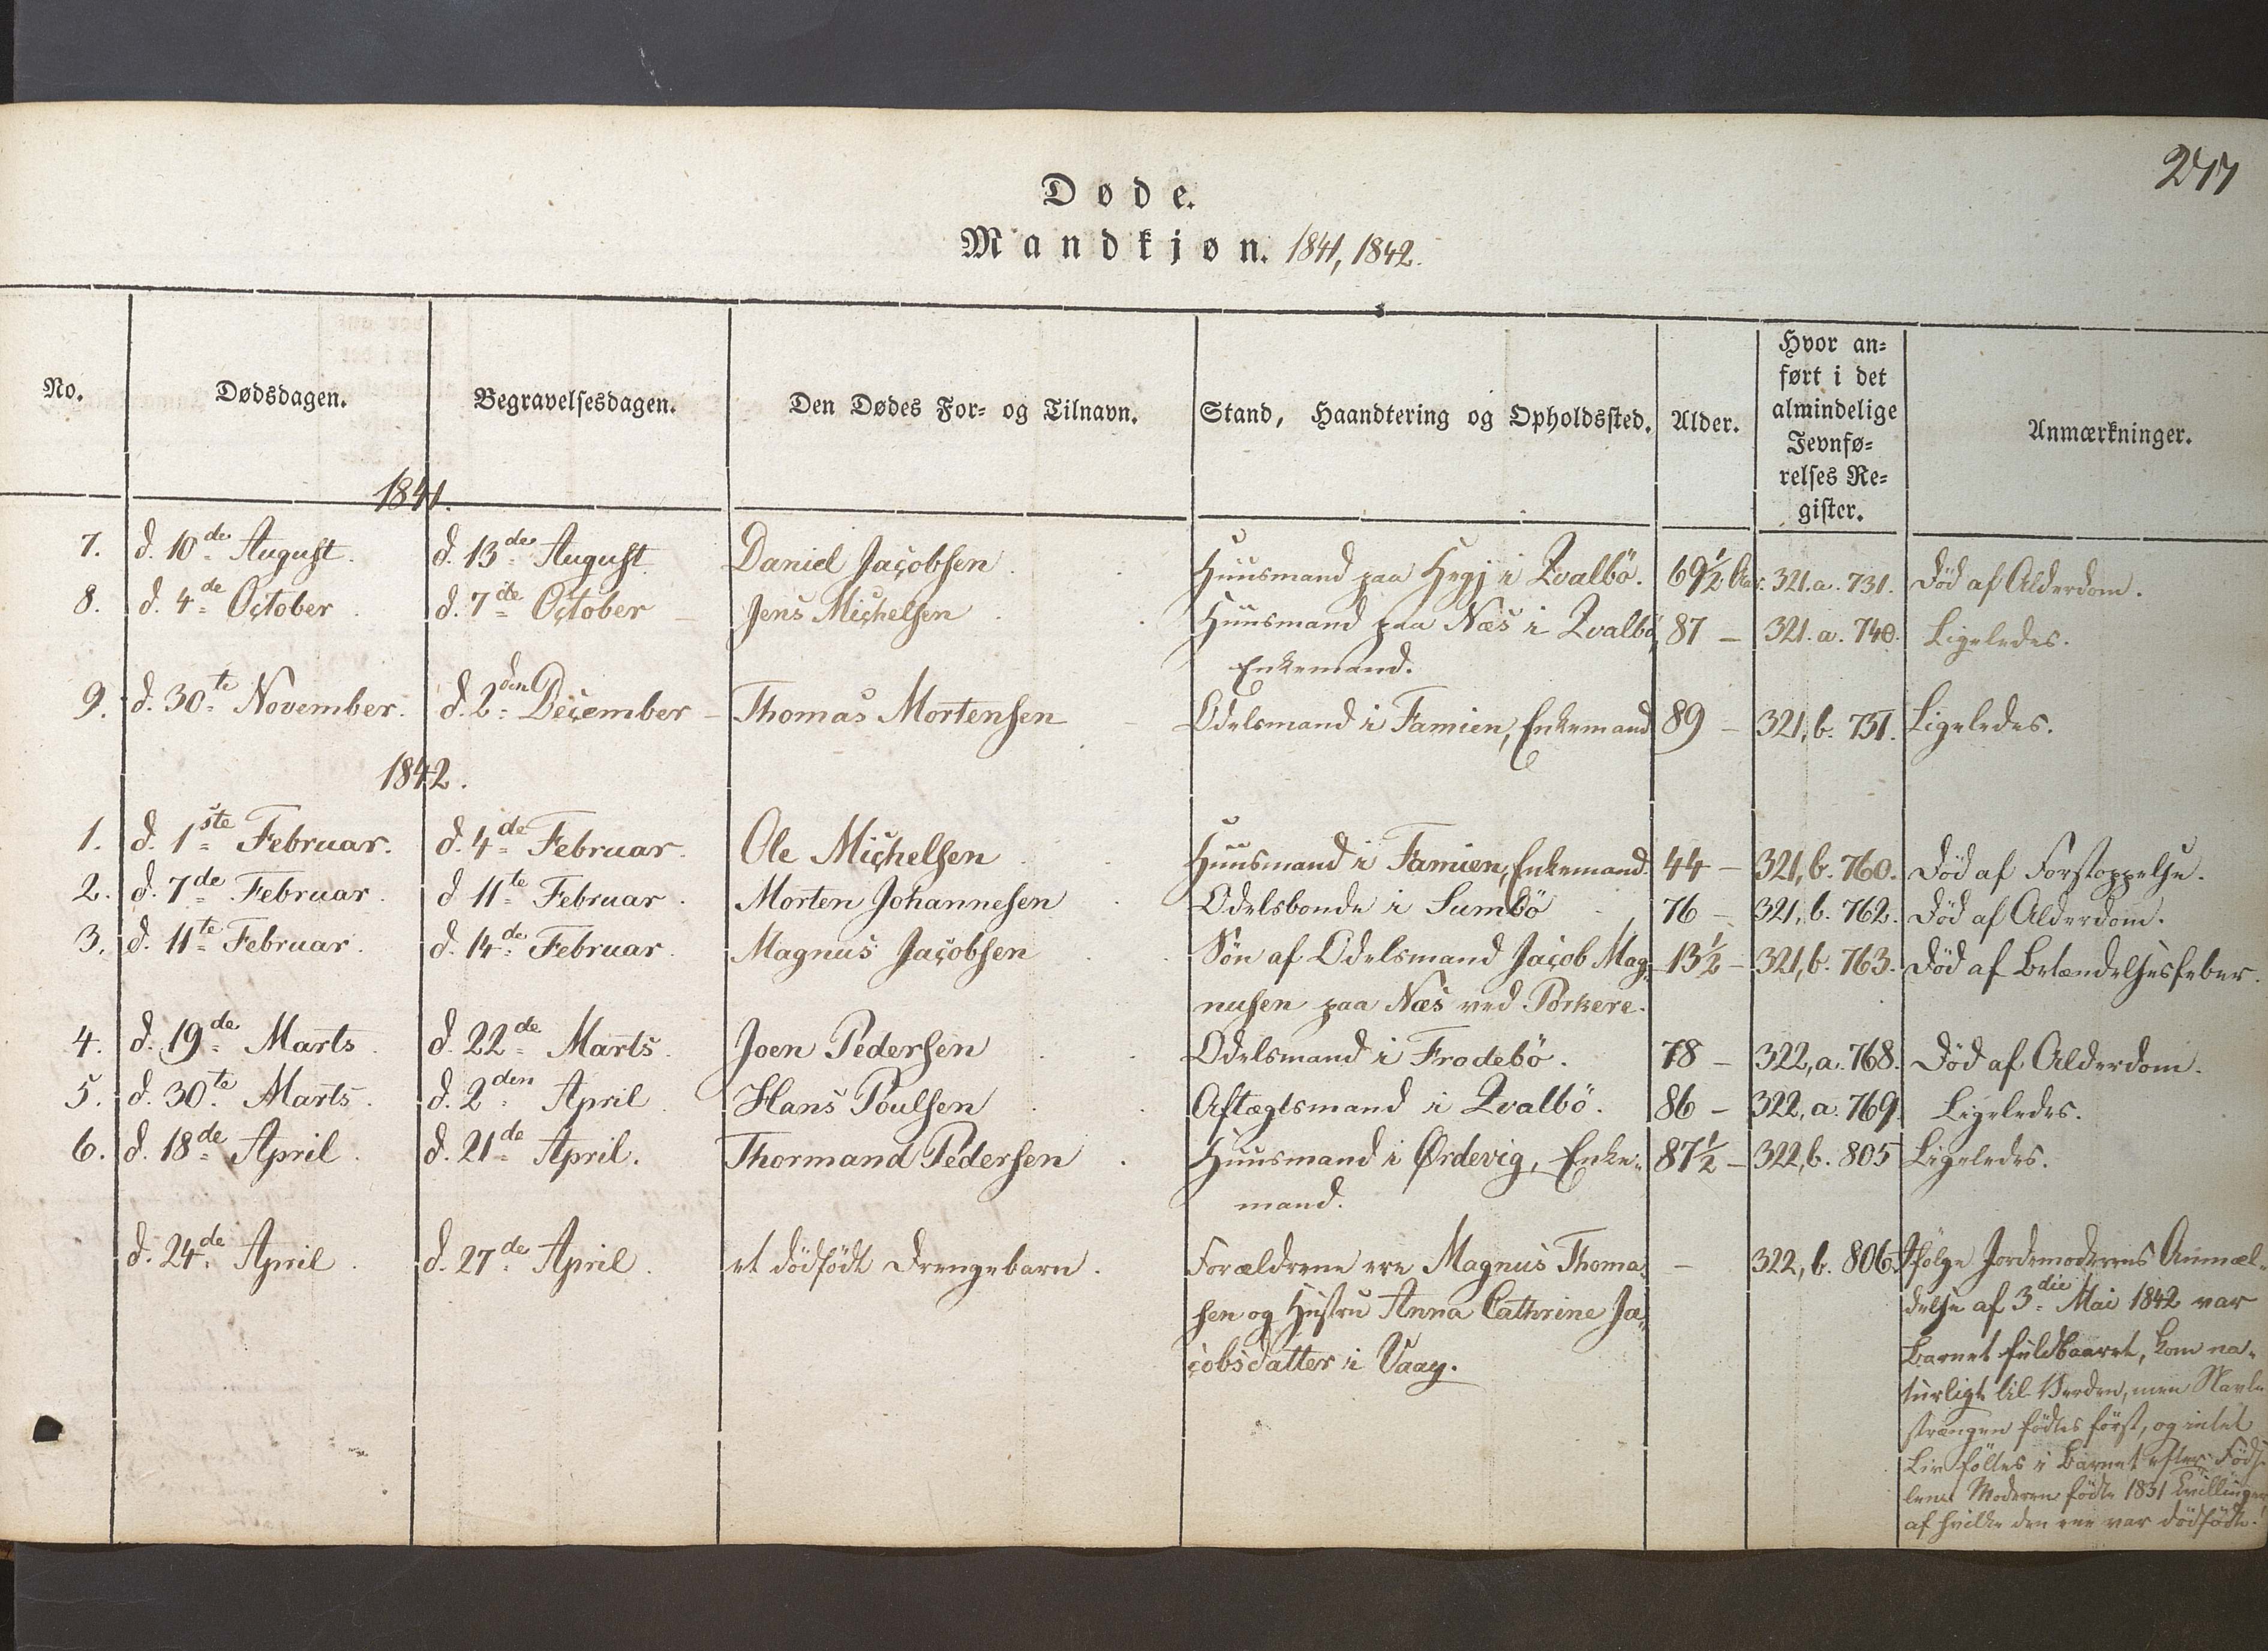 247
Døde.
Mandkjøn. 1841, 1842.
No. Dødsdagen. Begravelsesdagen. Den Dødes For- og Tilnavn. Stand, Haandtering og Opholdssted. Alder. Hvor an-
ført i det
almindelige
Jevnfø-
relses Re-
gister. Anmærkninger.
1841.
7. d. 10de August. d. 13de August. Daniel Jacobsen. Huusmand paa Hegj i Qvalbö. 69½ Aar. 321.a. 731. Död af Alderdom.
8. d. 4de October. d. 7de October Jens Michelsen Huusmand paa Næs i Qvalbö, 87 – 321. a. 740. Ligeledes.
Enkemand.
9. d. 30te November. d. 2den December – Thomas Mortensen Odelsmand i Famien, Enkemand 89 – 321, b. 751. Ligeledes.
1842.
1. d. 1ste Februar. d. 4de Februar. Ole Michelsen Huusmand i Famien, Enkemand. 44 – 321, b. 760. Död af Forstoppelse.
2. d. 7de Februar. d 11te Februar. Morten Johannesen Odelsbonde i Sumbö 76 – 321, b. 762. Död af Alderdom.
3. d. 11te Februar. d. 14de Februar. Magnus Jacobsen Sön af Odelsmand Jacob Mag- 13½ – 321, b. 763. Död af Betændelsesfeber.
nusen paa Næs ved Porkere.
4. d. 19de Marts. d. 22de Marts. Joen Pedersen Odelsmand i Frodebö. 78 – 322, a. 768. Död af Alderdom.
5. d. 30te Marts. d. 2den April. Hans Poulsen Aftægtsmand i Qvalbö. 86 – 322, a. 769. Ligeledes.
6. d. 18de April. d. 21de April. Thormand Pedersen. Huusmand i Ördevig, Enke- 87½ – 322, b. 805 Ligeledes.
mand.
d. 24de April. d. 27de April. et dödfödt Drengebarn. Forældrene ere Magnus Thoma- – 322, b. 806. Ifölge Jordemoderens Anmel-
sen og Hustru Anna Cathrine Ja- delse af 3die Mai 1842 var
cobsdatter i Vaag. Barnet fuldbaaret, kom na-
turligt til Verden, men Navle-
strængen födtes först, og intet
Liv föltes i Barnet efter Föds-
len. Moderen födte 1831 Tvillinger
af hvilke den ene var dödfödt.